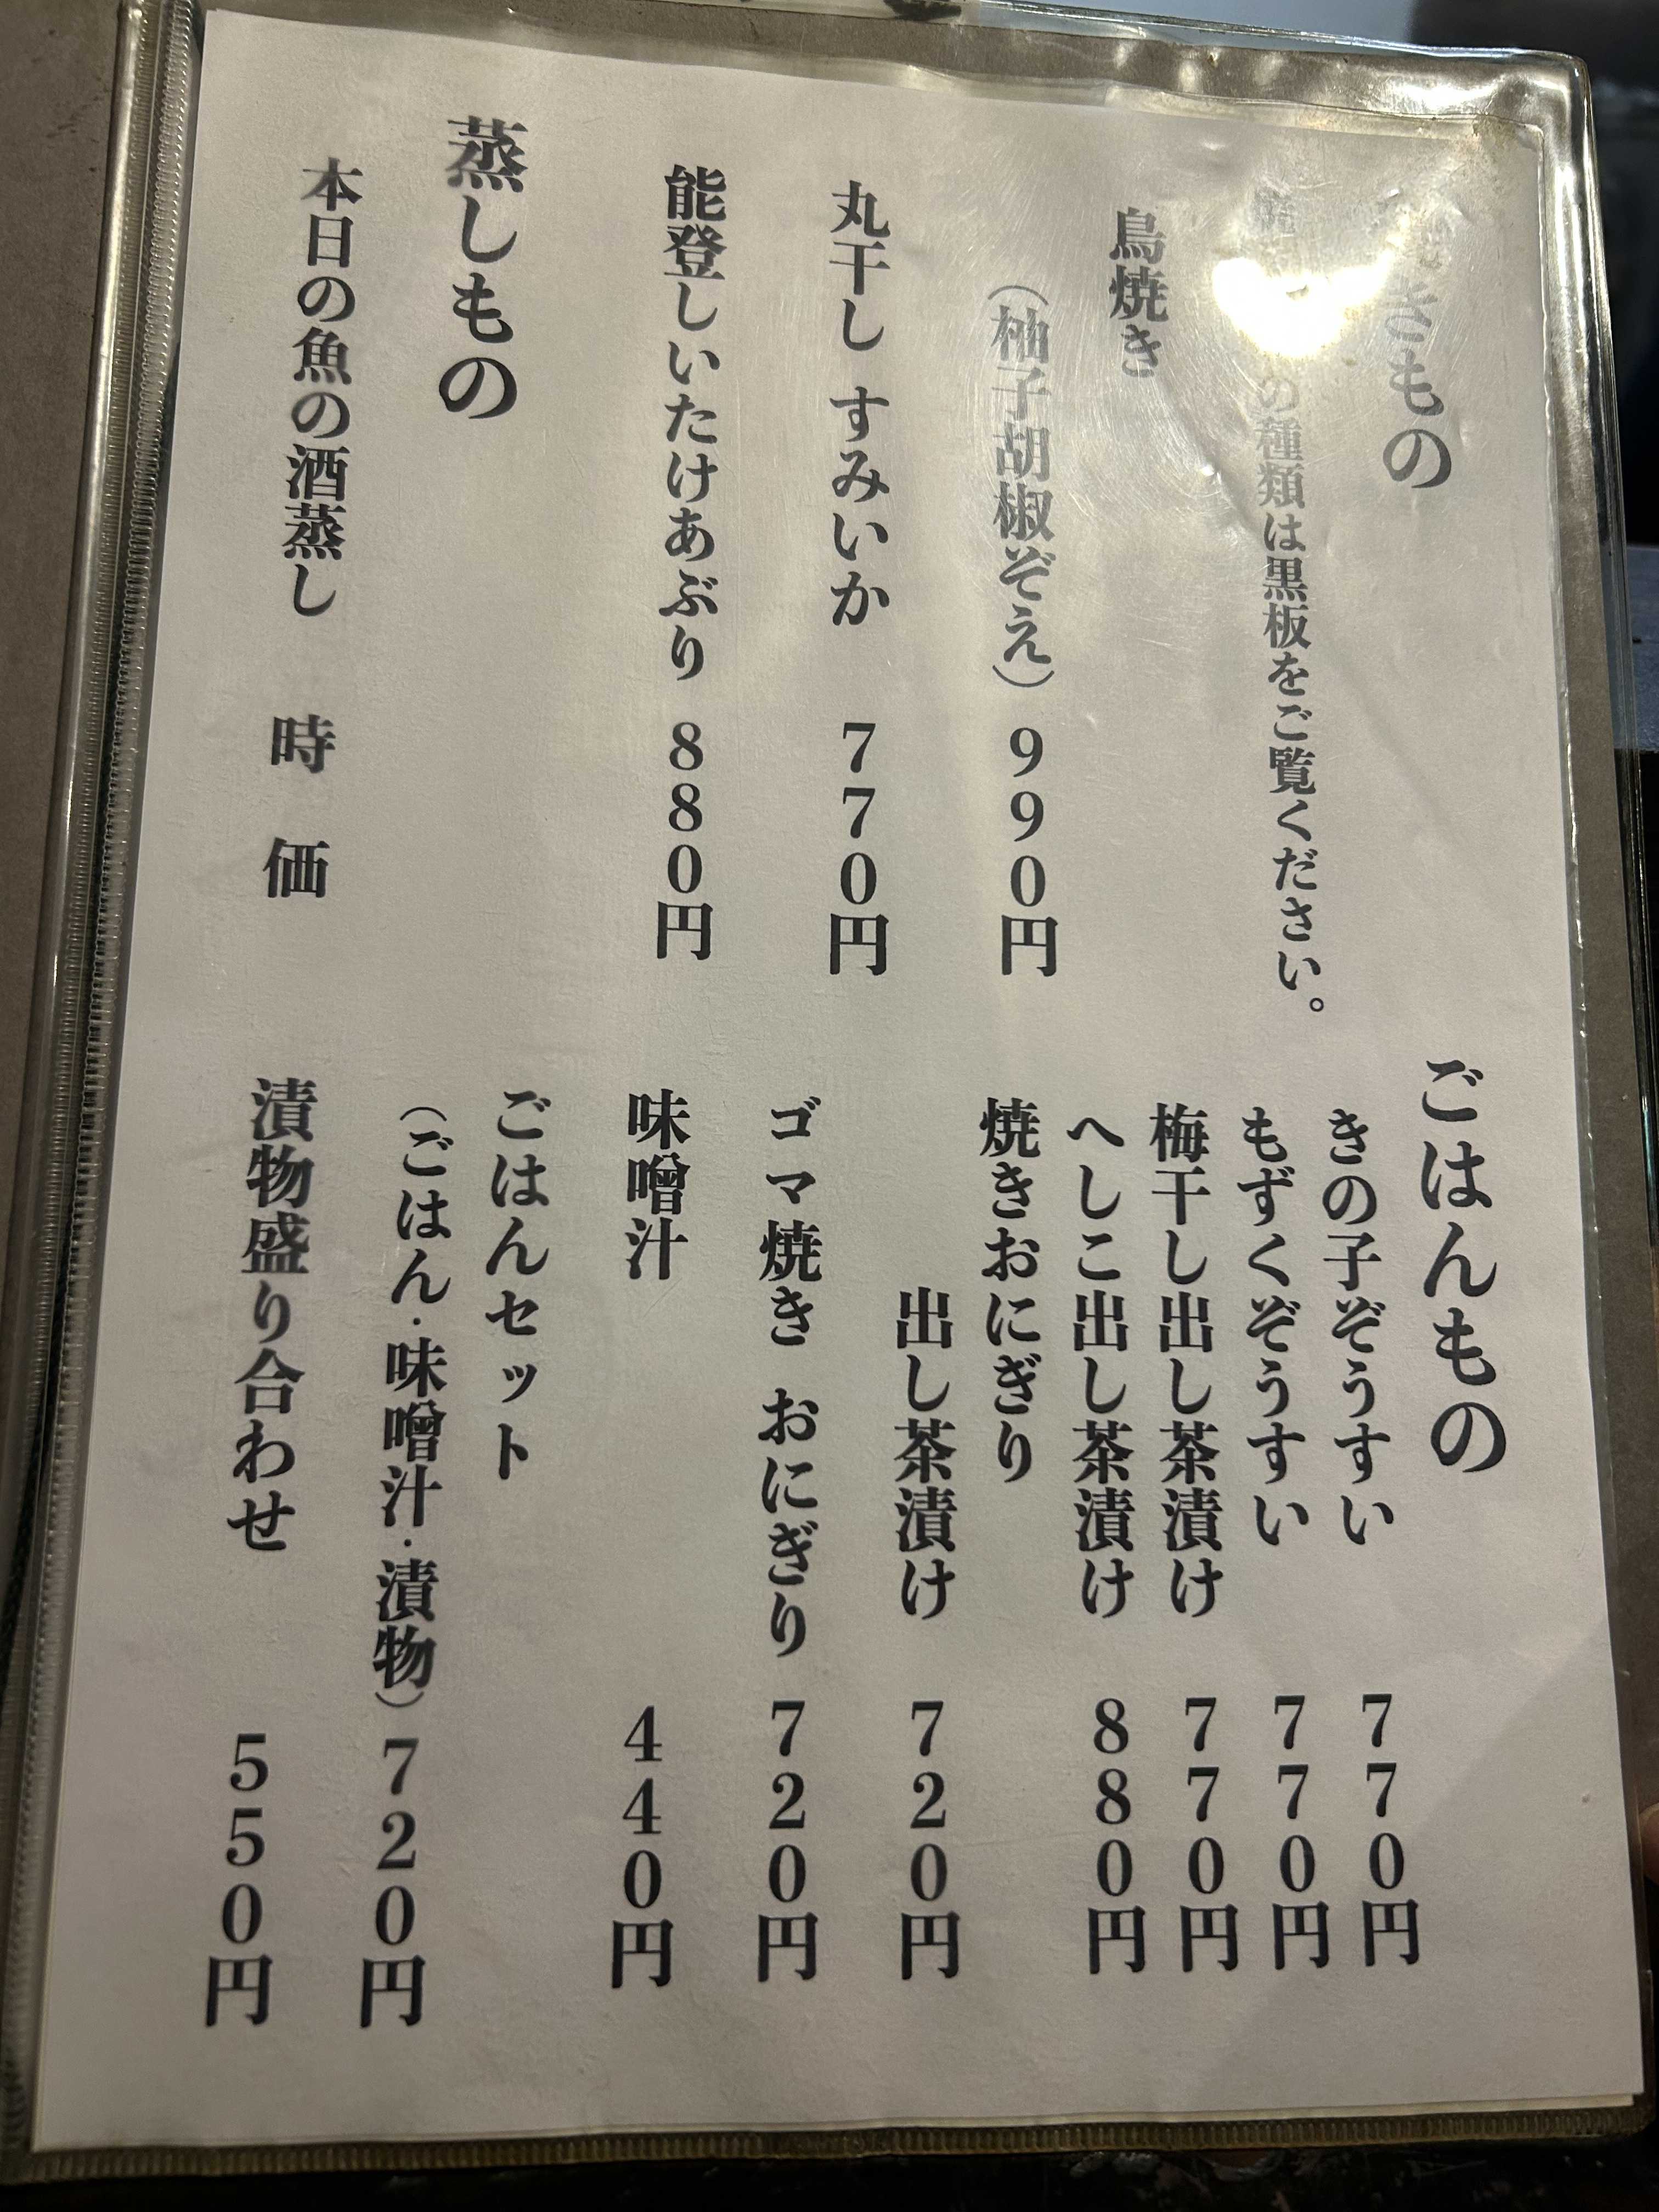 きもの
の種類は黒板をご覧ください。
鳥焼き
（柚子胡椒ぞえ） 990円
丸干し すみいか 770円
能登しいたけあぶり 880円
蒸しもの
本日の魚の酒蒸し 時価
ごはんもの
きの子ぞうすい 770円
もずくぞうすい 770円
梅干し出し茶漬け 770円
へしこ出し茶漬け 880円
焼きおにぎり
出し茶漬け 720円
ゴマ焼き おにぎり 720円
味噌汁 440円
ごはんセット
（ごはん・味噌汁・漬物） 720円
漬物盛り合わせ 550円